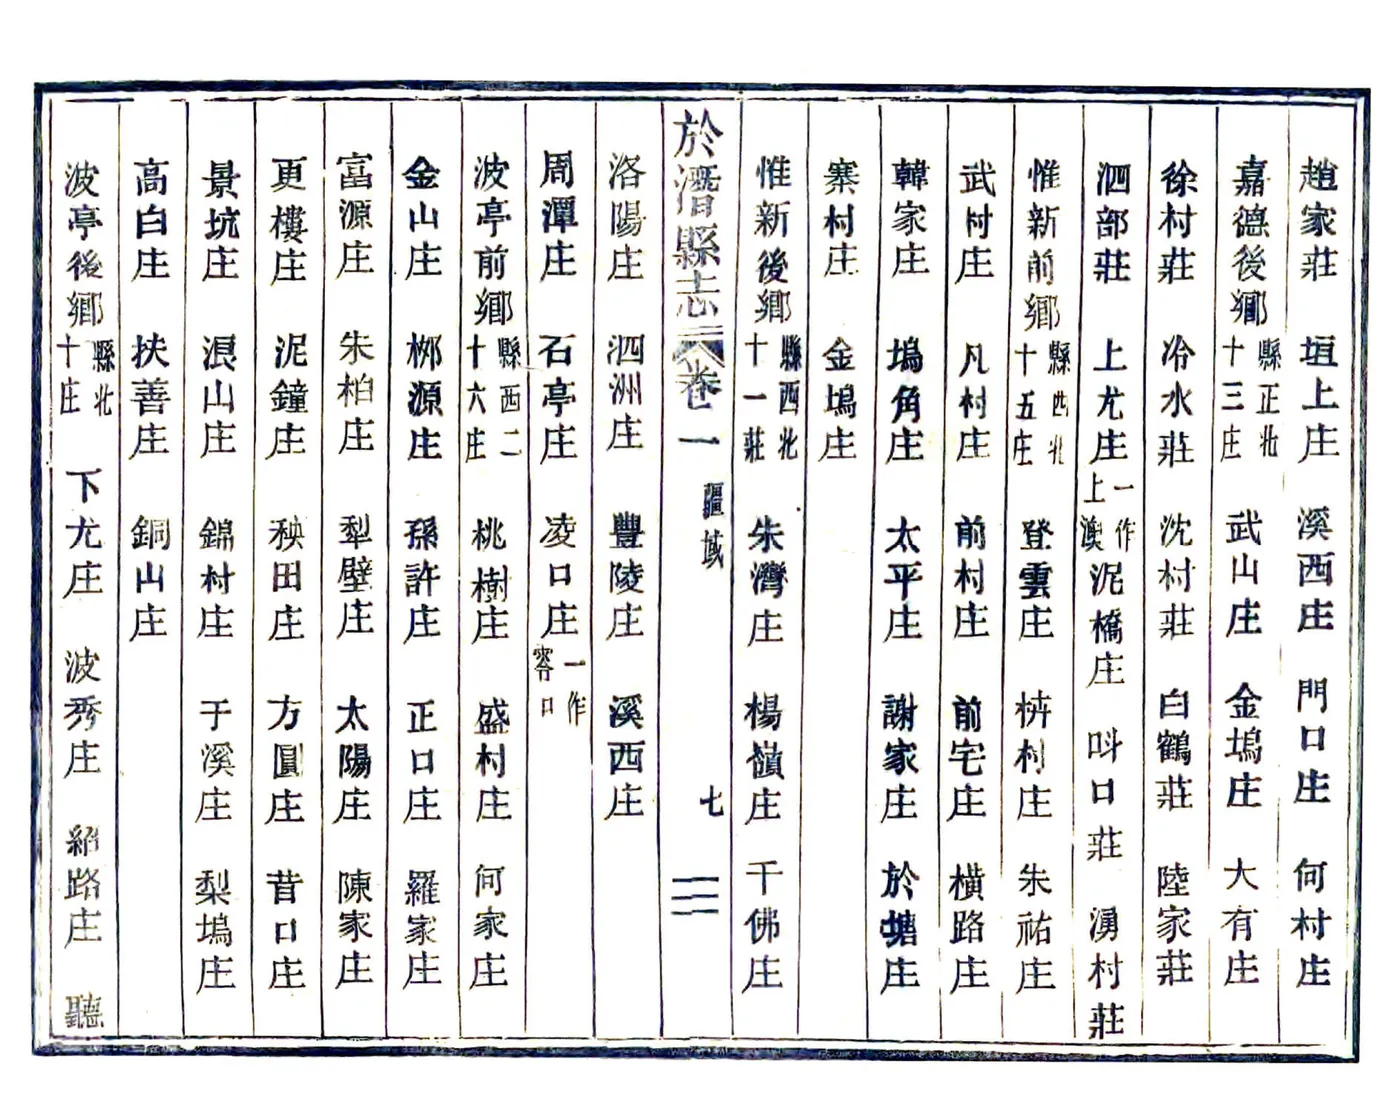 趙家莊　垣上庄　溪西庄　門口庄　何村庄
嘉德後鄉縣正北十三庄　武山庄　金塢庄　大有庄
徐村莊　冷水莊　沈村莊　白鶴莊　陸家莊
泗部莊　上尤庄一作上澳　泥橋庄　呌口莊　湧村莊
惟新前鄉縣西北十五庄　登雲庄　栟村庄　朱祐庄
武村庄　凡村庄　前村庄　前宅庄　橫路庄
韓家庄　塢角庄　太平庄　謝家庄　於塘庄
寨村庄　金塢庄
惟新後鄉縣西北十一莊　朱灣庄　楊嶺庄　千佛庄
於潛縣志　卷一　疆域　七
洛陽庄　泗洲庄　豐陵庄　溪西庄
周潭庄　石亭庄　凌口庄一作窄口
波亭前鄉縣西二十六庄　桃樹庄　盛村庄　何家庄
金山庄　桞源庄　孫許庄　正口庄　羅家庄
富源庄　朱柏庄　犁壁庄　太陽庄　陳家庄
更樓庄　泥鐘庄　秧田庄　方圓庄　昔口庄
景坑庄　浪山庄　錦村庄　于溪庄　梨塢庄
高白庄　扶善庄　銅山庄
波亭後鄉縣北十庄　下尤庄　波秀庄　紹路庄　聽